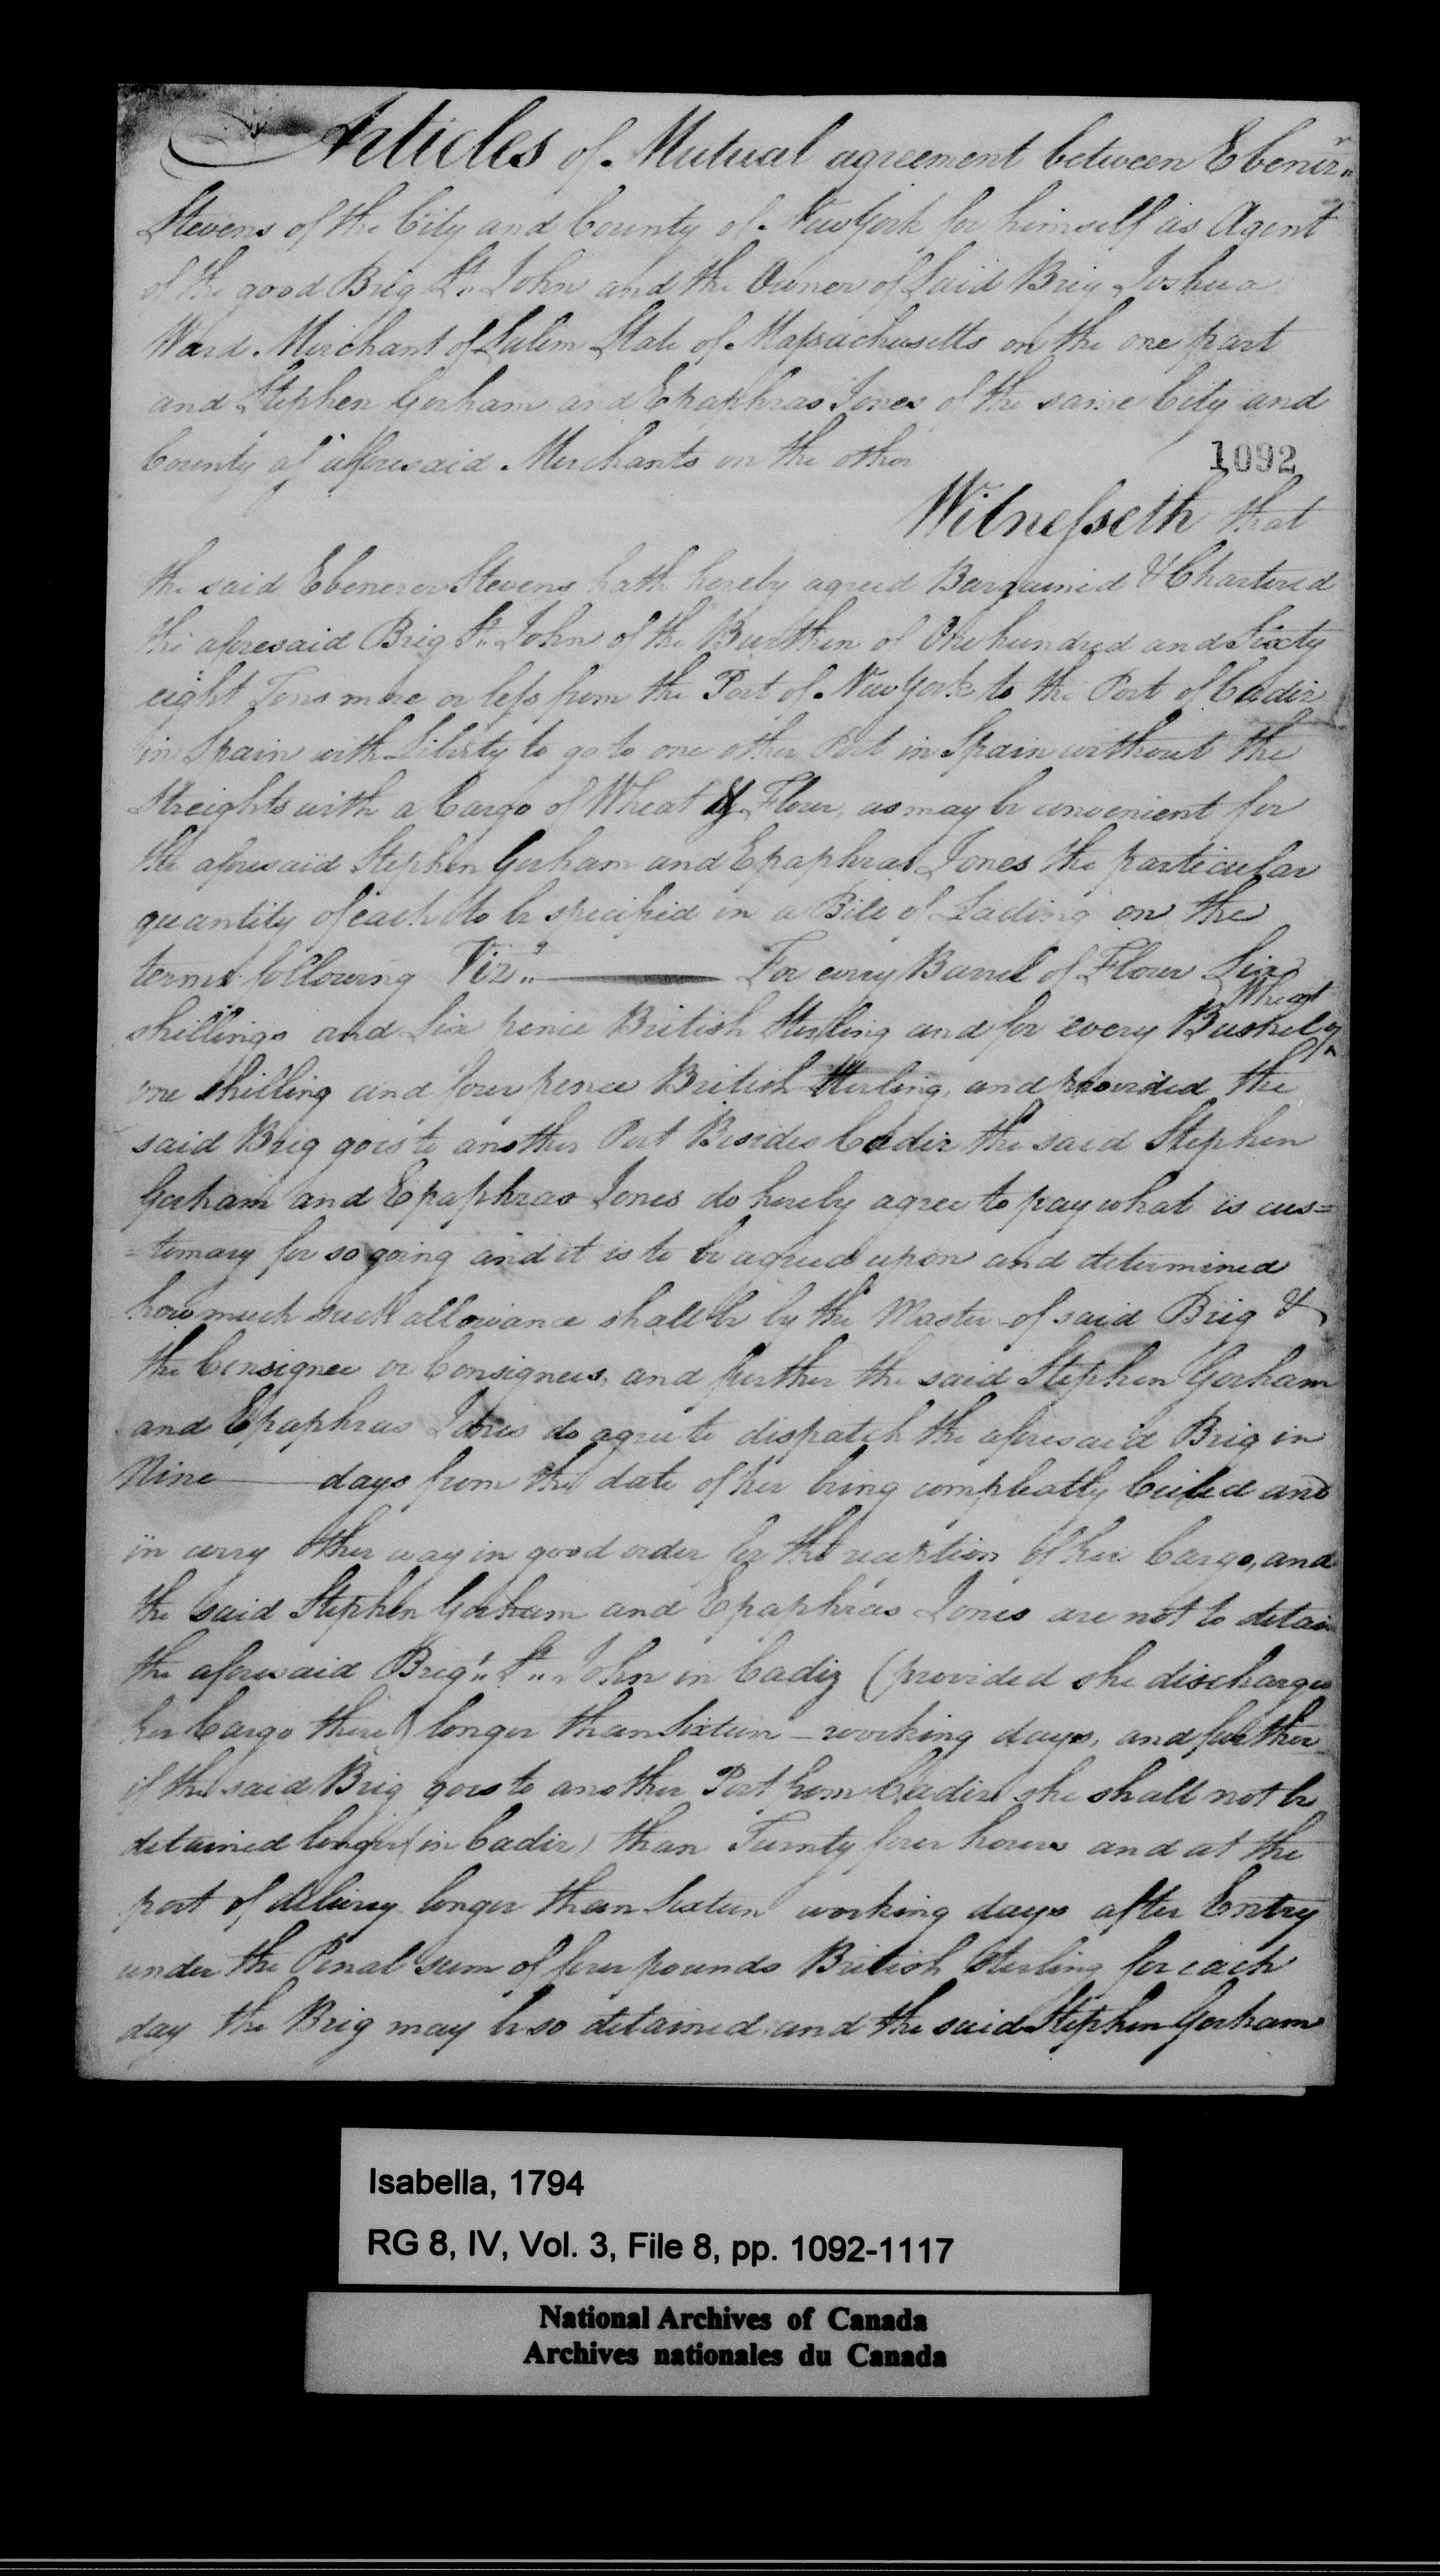 Articles of Mutual agreement between Ebenezr
Stevens of the City and County of New York for himself as Agent
of the good Brig St. John and the Owner of Said Brig Joshua
Ward Merchant of Salem State of Massachusetts on the one part
and Stephen Gorham and Epaphras Jones of the same City and
County as afforesaid Merchants on the other
1092
Witnesseth that
the said Ebenezer Stevens hath hereby agreed Bargained & Chartered
the aforesaid Brig St. John of the Burthen of One hundred and Sixty
eight Tons more or less from the Port of New York to the Port of Cadiz
in Spain with Liberty to go to one other Port in Spain without the
Streights with a Cargo of Wheat & Flour, as may be convenient for
the aforesaid Stephen Gorham and Epaphras Jones the particular
quantity of each to be specified in a Bill of Lading on the
terms following Viz. For every Barrel of Flour Six
shillings and Six pence British Sterling and for every Bushel of Wheat
one shilling and four pence British Sterling, and provided the
said Brig goes to another Port Besides Cadiz the said Stephen
Gorham and Epaphras Jones do hereby agree to pay what is cus=
=tomary for so going and it is to be agreed upon and determined
how much such allowance shall be by the Master of said Brig &
the Consignee or Consignees, and further the said Stephen Gorham
and Epaphras Jones do agree to dispatch the aforesaid Brig in
Nine days from the date of her being compleatly Ceiled and
in every other way in good order for the reception of her Cargo, and
the said Stephen Gorham and Epaphras Jones are not to detain
the aforesaid Brig St. John in Cadiz (provided she discharges
her Cargo there) longer than Sixteen working days, and further
if the said Brig goes to another Port from Cadiz she shall not be
detained longer (in Cadiz) than Twenty four hours and at the
port of delivery longer than Sixteen working days after Entry
under the Penal sum of four pounds British Sterling for each
day the Brig may be so detained and the said Stephen Gorham
Isabella, 1794
RG 8, IV, Vol. 3, File 8, pp. 1092-1117
National Archives of Canada
Archives nationales du Canada